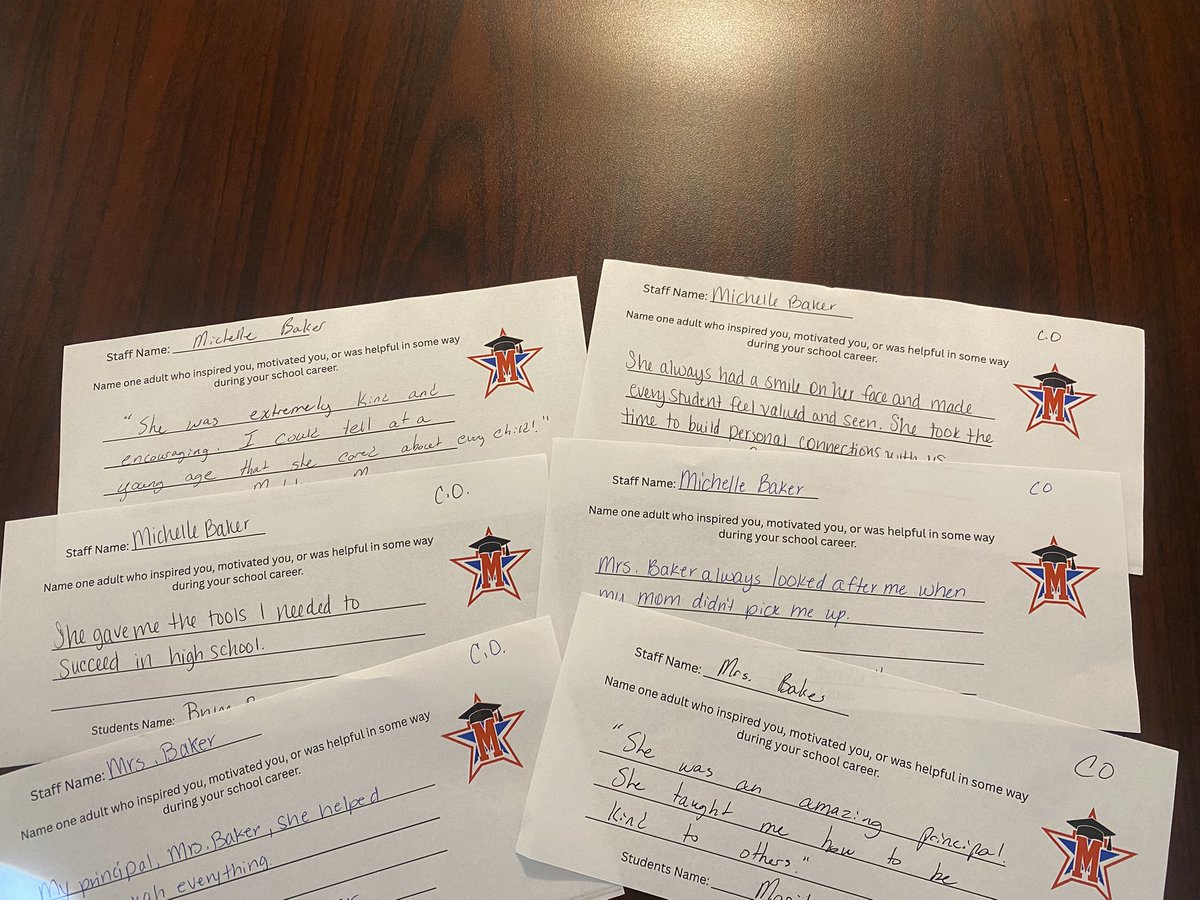 Staff Name: Michelle Baker
Name one adult who inspired you, motivated you, or was helpful in some way
during your school career.
M
"She was extremely kind and
encouraging. I could tell at a
young age that she cared about every child!"
Staff Name: Michelle Baker
C.O
Name one adult who inspired you, motivated you, or was helpful in some way
during your school career.
M
She always had a smile on her face and made
every student feel valued and seen. She took the
time to build personal connections with us
C.O.
Staff Name: Michelle Baker
Name one adult who inspired you, motivated you, or was helpful in some way
during your school career.
M
She gave me the tools I needed to
succeed in high school.
Students Name:
Staff Name: Michelle Baker
CO
Name one adult who inspired you, motivated you, or was helpful in some way
during your school career.
M
Mrs. Baker always looked after me when
my mom didn't pick me up.
C.O.
Staff Name: Mrs. Baker
Name one adult who inspired you, motivated you, or was helpful in some way
during your school career.
M
My principal, Mrs. Baker, she helped
everything.
Staff Name: Mrs. Baker
CO
Name one adult who inspired you, motivated you, or was helpful in some way
during your school career.
M
"She was an amazing principal.
She taught me how to be
kind to others."
Students Name: